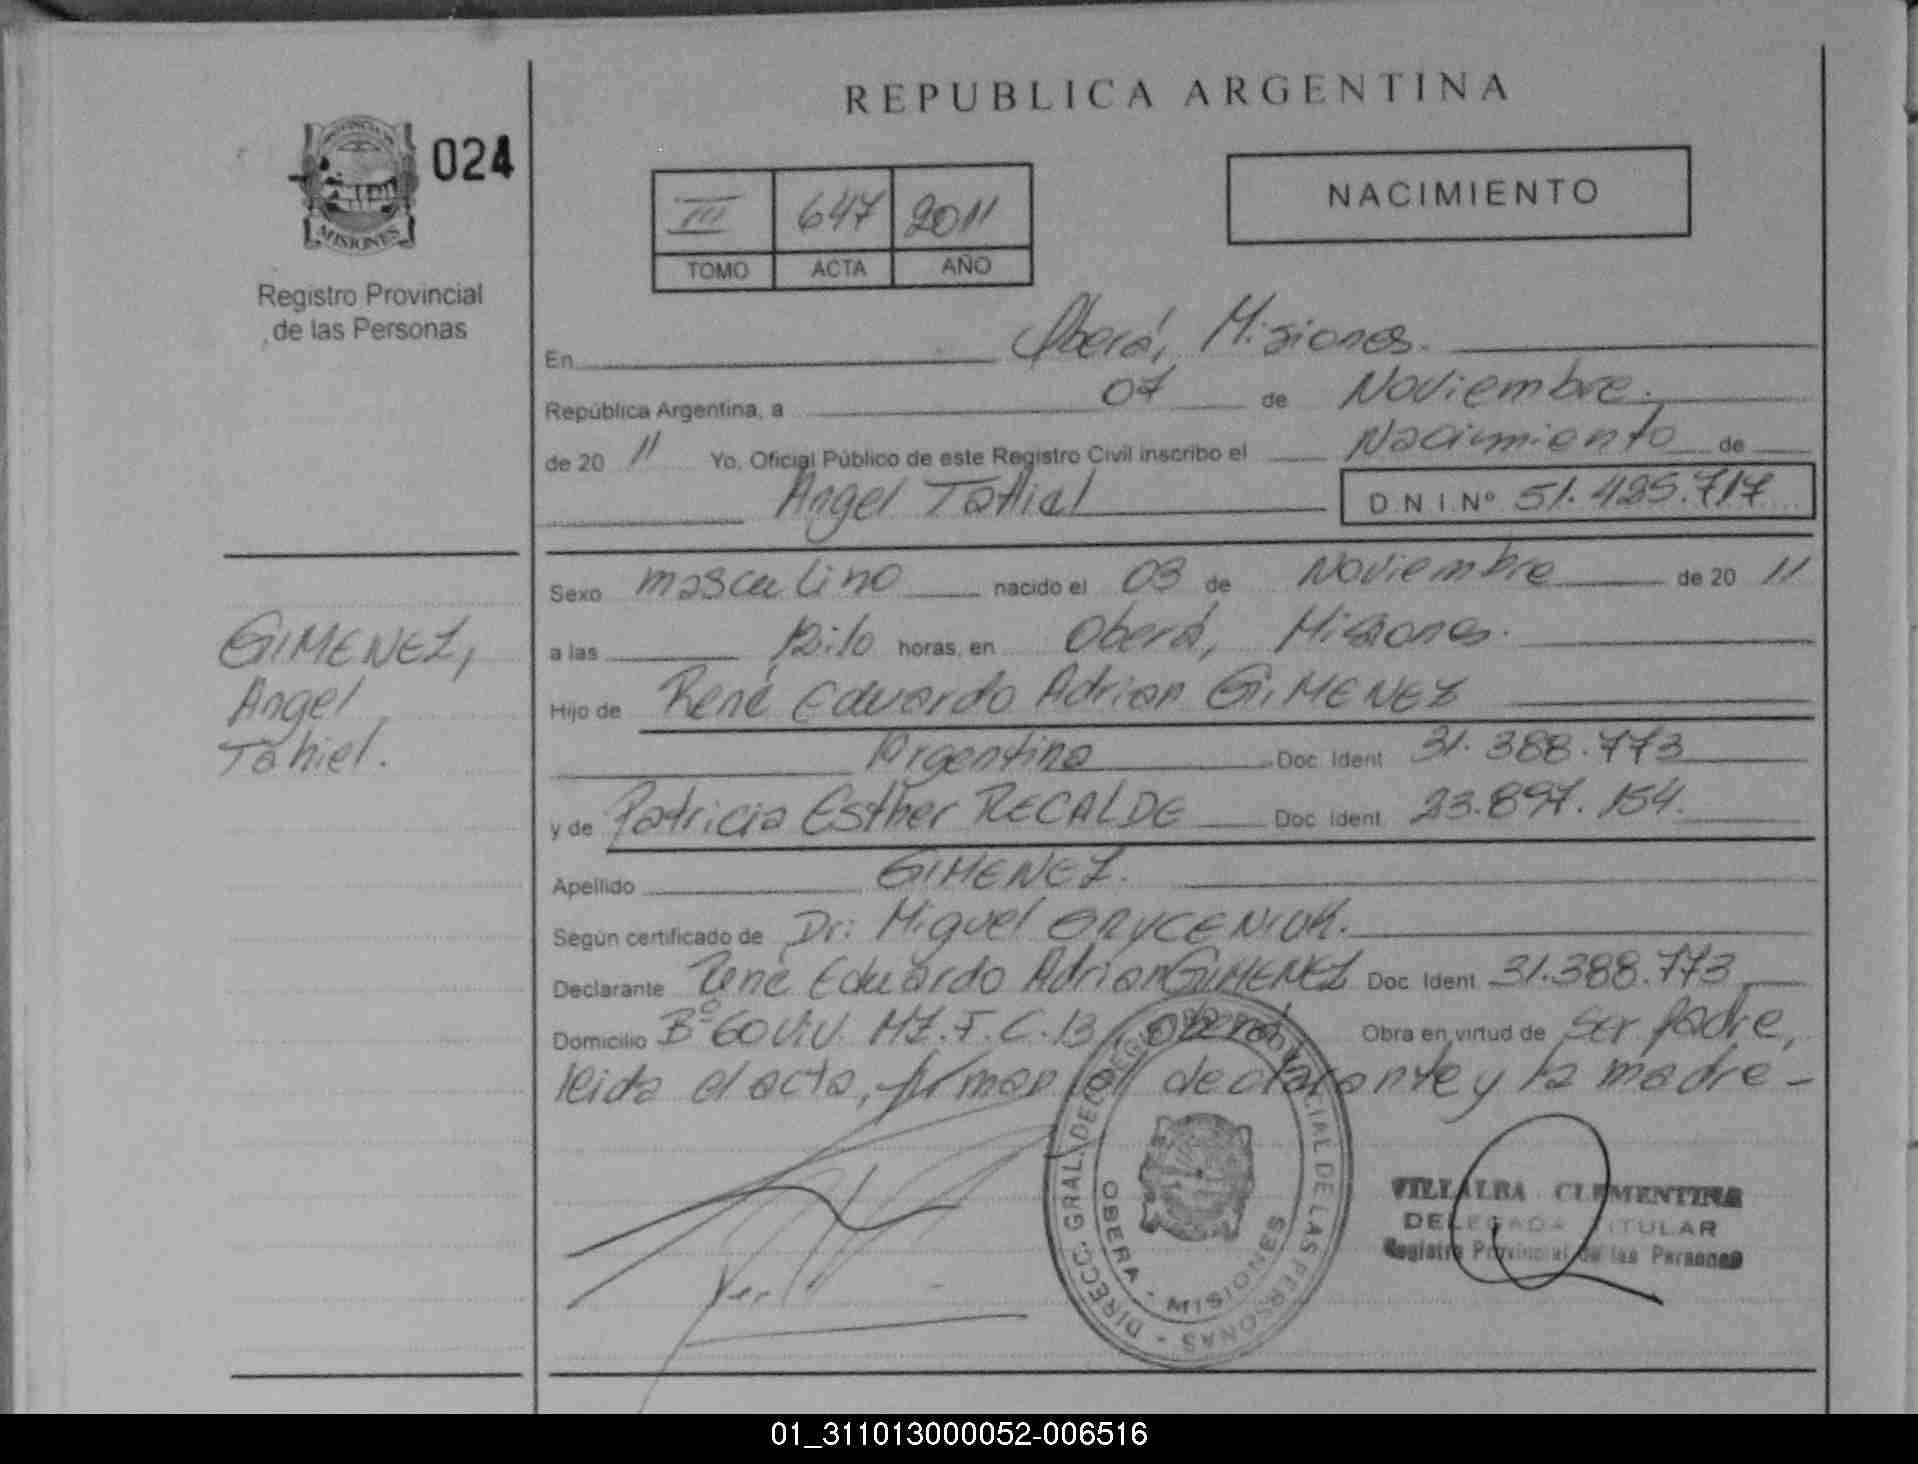 REPUBLICA ARGENTINA
PROVINCIA DE
MISIONES
024
Registro Provincial
de las Personas
III 647 2011
TOMO ACTA AÑO
NACIMIENTO
En Oberá, Misiones.
República Argentina, a 07 de Noviembre.
de 2011 Yo, Oficial Público de este Registro Civil inscribo el Nacimiento de
Angel Tahiel D.N.I.Nº 51.425.717
Sexo masculino nacido el 03 de Noviembre de 2011
a las 12:10 horas, en Oberá, Misiones.
Hijo de René Eduardo Adrian GIMENEZ
Argentina Doc. Ident 31.388.773
y de Patricia Esther RECALDE Doc. Ident 23.897.154.
Apellido GIMENEZ.
Según certificado de Dr: Miguel GRYCENIUK.
Declarante René Eduardo Adrian GIMENEZ Doc. Ident. 31.388.773
Domicilio Bº 60 Viv. MZ. F. C. 13, Oberá Obra en virtud de ser padre,
leida el acta, firman el declarante y la madre -
GIMENEZ,
Angel
Tahiel.
DIRECC. GRAL. DEL REGISTRO PROVINCIAL DE LAS PERSONAS -
OBERA - MISIONES
VILLALBA CLEMENTINA
DELEGADA TITULAR
Registro Provincial de las Personas
01_311013000052-006516